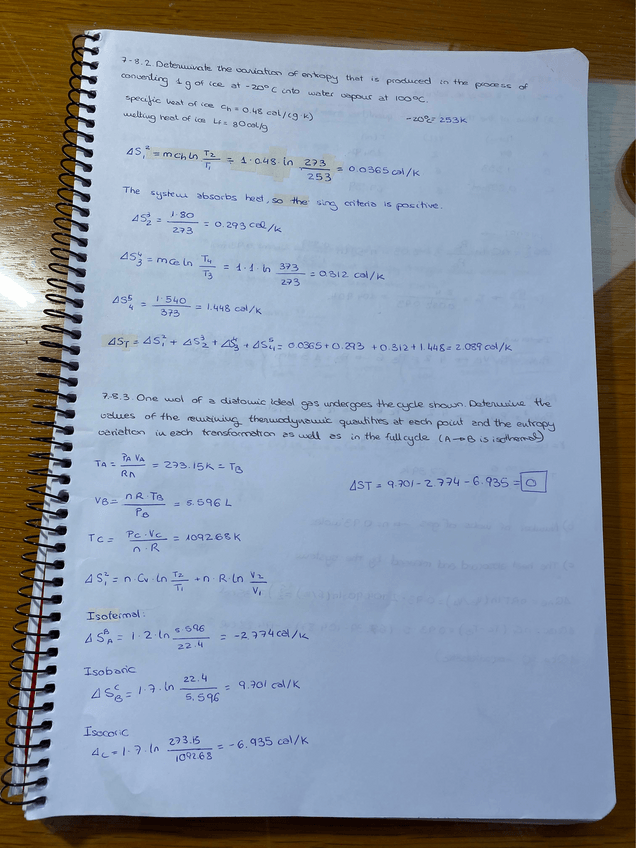 7-8.2 Determinate the variation of entropy that is produced in the process of
converting 1 g of ice at -20°C into water vapour at 100°C.
specific heat of ice Ch = 0.48 cal/(g·K) -20°C = 253K
melting heat of ice Lf = 80cal/g
ΔS₁² = m ch ln T2/T1 = 1·0.48·ln 273/253 = 0.0365 cal/K
The system absorbs hed, so the sing criteria is positive.
ΔS₂³ = 1·80/273 = 0.293 cal/K
ΔS₃⁴ = m ce ln T4/T3 = 1·1·ln 373/273 = 0.312 cal/K
ΔS₄⁵ = 1·540/373 = 1.448 cal/K
ΔST = ΔS₁² + ΔS₂³ + ΔS₃⁴ + ΔS₄⁵ = 0.0365 + 0.293 + 0.312 + 1.448 = 2.089 cal/K
7.8.3 One mol of a diatomic ideal gas undergoes the cycle shown. Determine the
values of the remaining thermodynamic quantities at each point and the entropy
variation in each transformation as well as in the full cycle. (A→B is isothermal)
TA = PA VA/Rn = 273.15K = TB
ΔST = 9.701 - 2.774 - 6.935 = 0
VB = n R·TB/PB = 5.596 L
TC = PC·VC/n·R = 1092.68K
ΔS₁² = n·Cv·ln T2/T1 + n·R·ln V2/V1
Isotermal:
ΔS_A^B = 1·2·ln 5.596/22.4 = -2.774 cal/K
Isobaric
ΔS_B^C = 1·7·ln 22.4/5.596 = 9.701 cal/K
Isocoric
ΔC = 1·7·ln 273.15/1092.68 = -6.935 cal/K